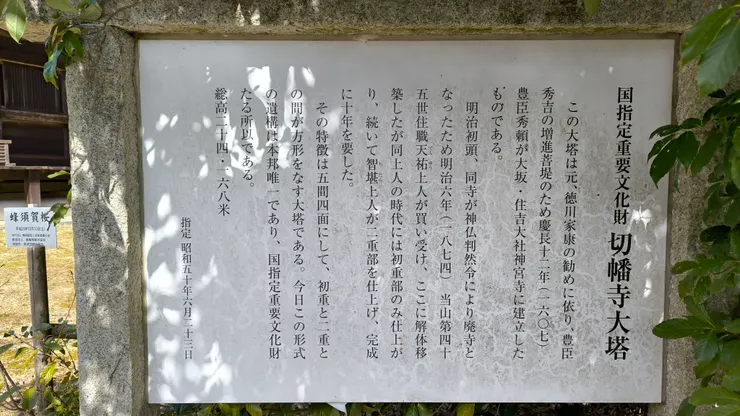 国指定重要文化財 切幡寺大塔
この大塔は元、徳川家康の勧めに依り、豊臣
秀吉の増進菩提のため慶長十二年(一六〇七)
豊臣秀頼が大坂・住吉大社神宮寺に建立した
ものである。
明治初頭、同寺が神仏判然令により廃寺と
なったため明治六年(一八七四)当山第四十
五世住職天祐上人が買い受け、ここに解体移
築したが同上人の時代には初重部のみ仕上が
り、続いて智堪上人が二重部を仕上げ、完成
に十年を要した。
その特徴は五間四面にして、初重と二重と
の間が方形をなす大塔である。今日この形式
の遺構は本邦唯一であり、国指定重要文化財
たる所以である。
総高二十四・一六八米
指定 昭和五十年六月二十三日
蜂須賀桜